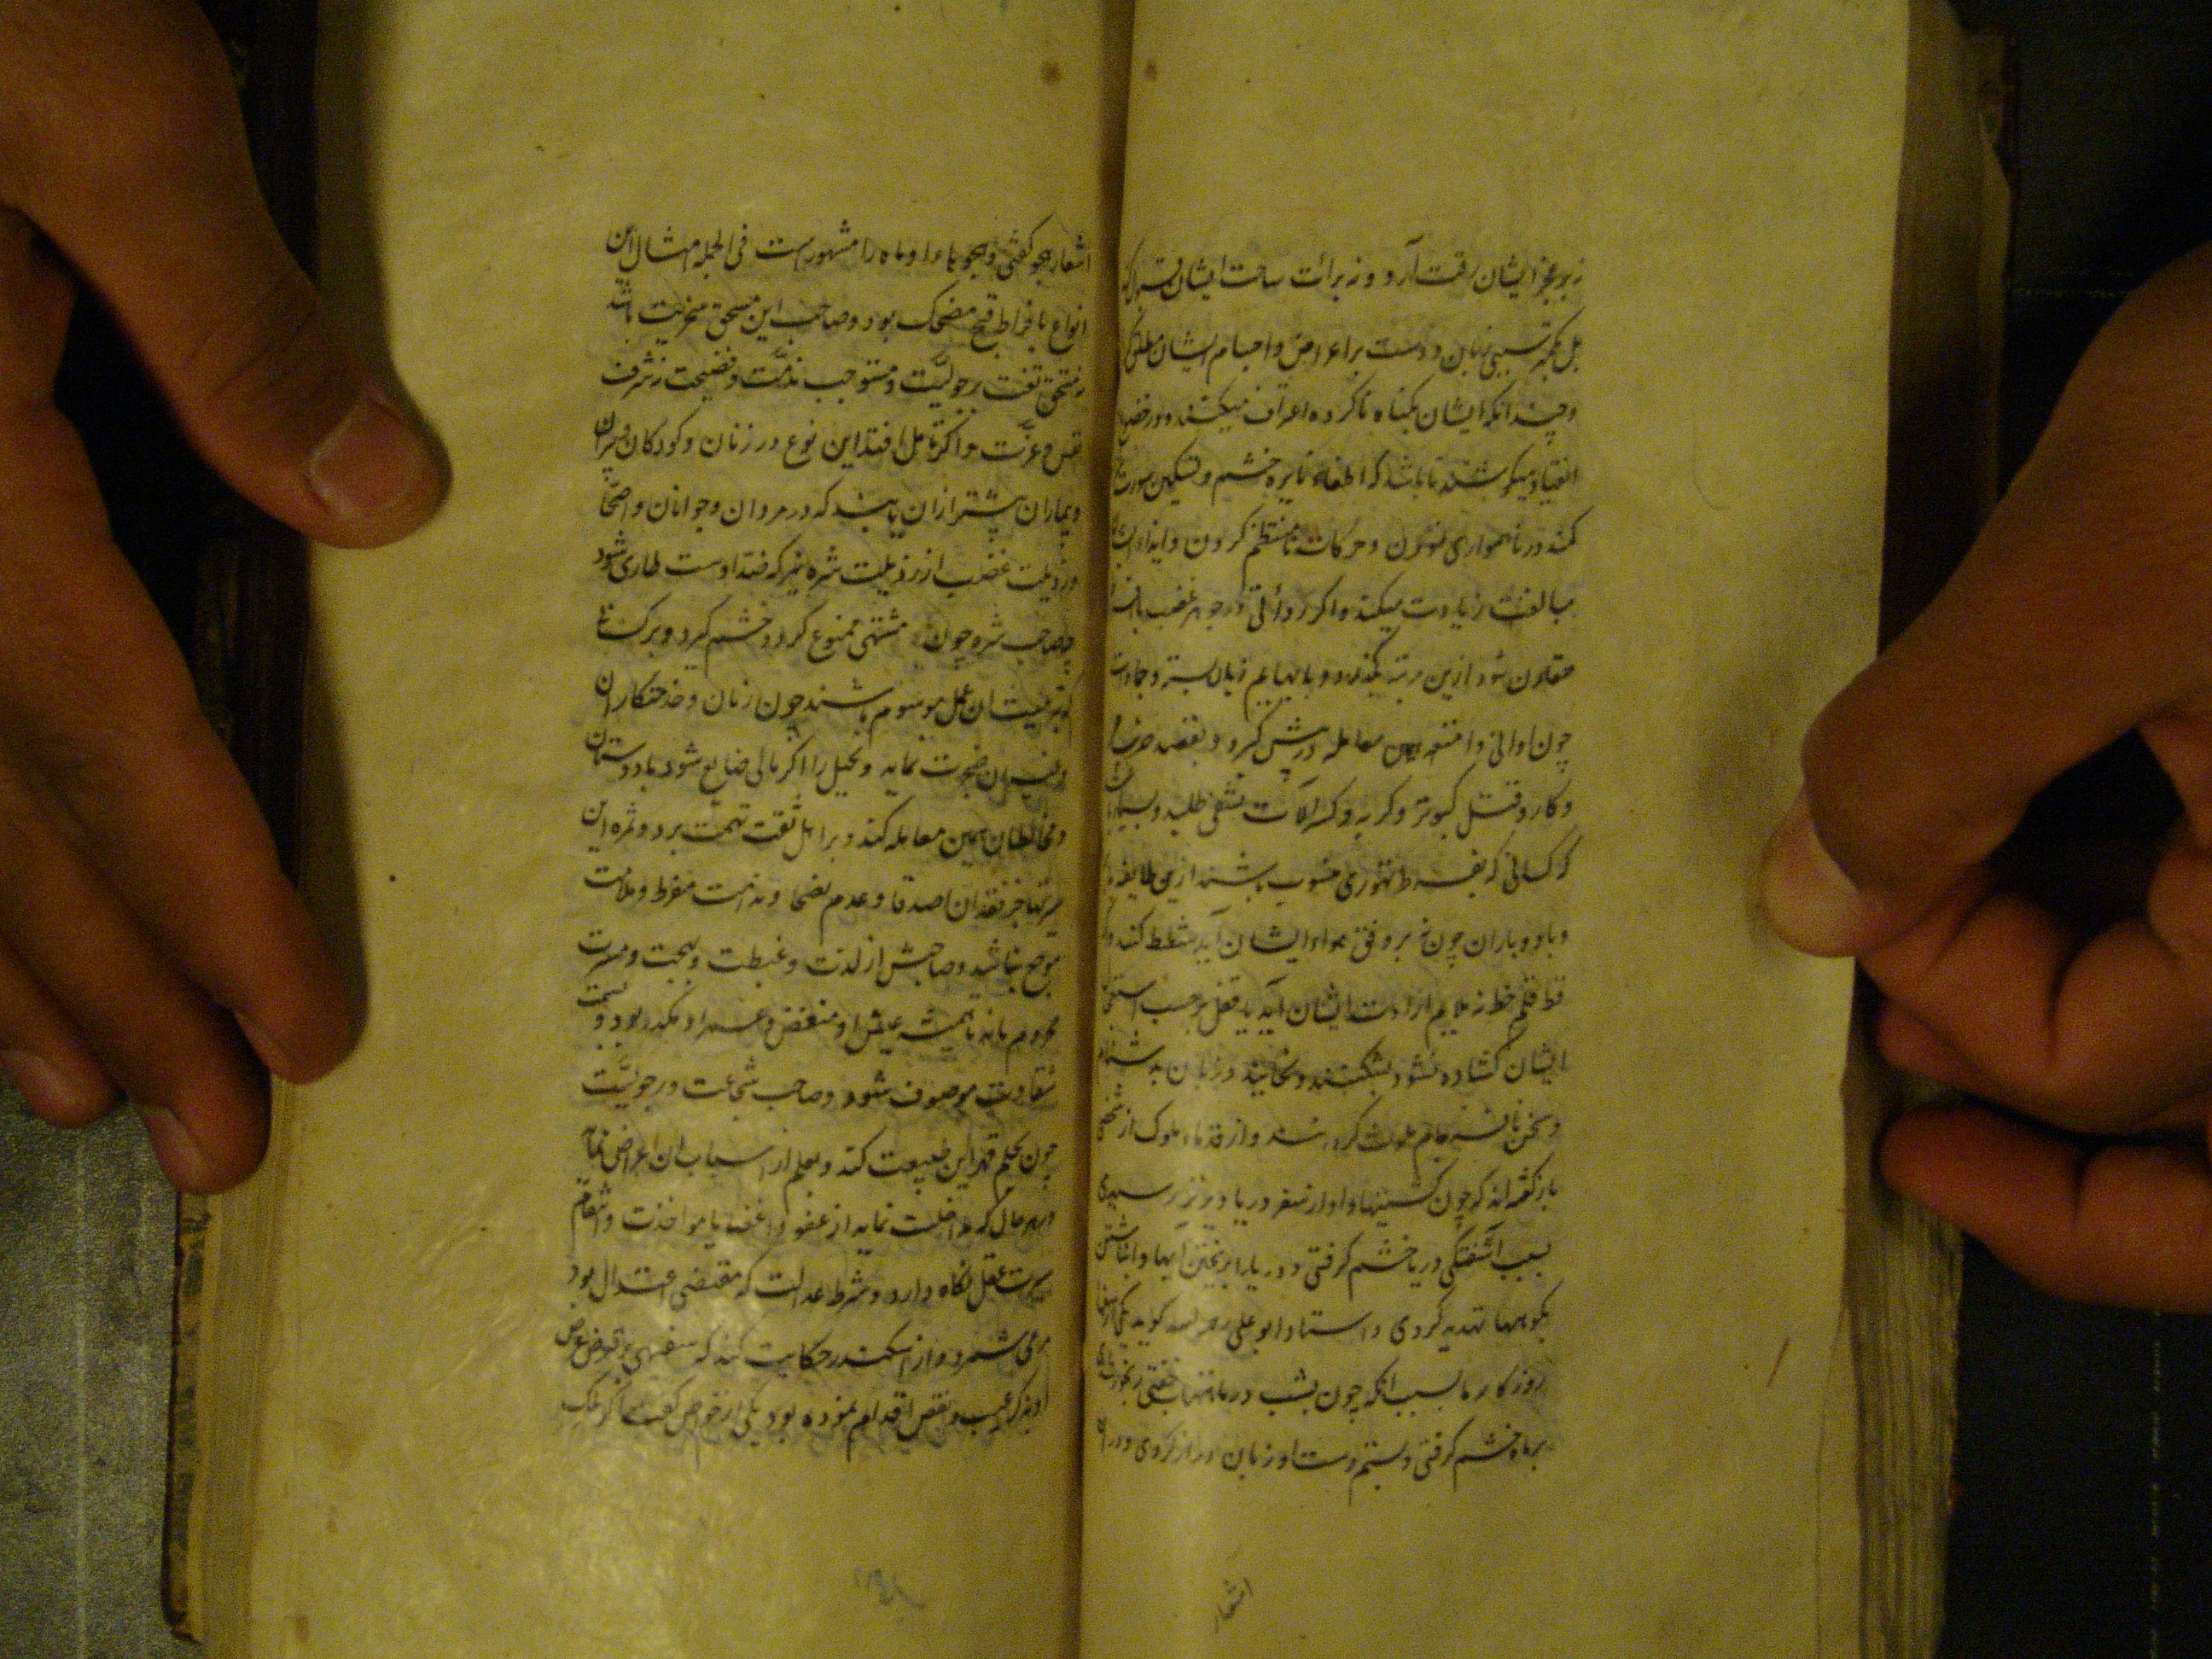 نه بر عجز ایشان رقت آرد و نه برائت ساحت ایشان قبول کند
بل بکمتر سببی زبان و دست بر اعراض و اجسام ایشان مطلق
و چندانکه ایشان بگناه ناکرده اعتراف میکنند و در خضوع
انقیاد میکوشند تا باشد که اطفاء نایره خشم و تسکین سورت
کنند در ناهمواری نمودن و حرکات نامنتظم کردن و ایذاء ایشان
مبالغت زیادت میکند و اگر ردائتی در جوهر غضب با افراط
مقارن شود ازین مرتبه بگذرد و با بهایم زبان بسته و جمادات
چون اوانی و امتعه همین معامله در پیش گیرد و بقصد ضرب
و گاو و قتل کبوتر و گربه و کسر آلات تشفی طلبد و بسیار باشد
که کسانی که بفرط تهوری منسوب باشند ازین طایفه با
و باد و باران چون نه بر وفق هوای ایشان آید شطط کنند و اگر
قط قلم خط نه ملایم ارادت ایشان آید یا قفل بر حسب استعجال
ایشان گشاده نشود بشکنند و بخایند و زبان به دشنام
و سخن نافرجام ملوث گردانند و از قدماء ملوک از شخصی
باز گفته‌اند که چون کشتیهاء او از سفر دریا دیرتر رسیدی
بسبب آشفتگی دریا خشم گرفتی و دریا را بریختن آبها و انباشتن
بکوهها تهدید کردی و استاد ابو علی رحمه الله گوید یکی از سفهاء
روزگار ما بسبب آنکه چون بشب در ماهتاب خفتی رنجور شدی
بر ماه خشم گرفتی و بشتم دست و زبان دراز کردی و در
اشعا
اشعار هجو گفتی و هجوهاء او ماه را مشهورست فی الجمله امثال این
انواع با فراط قبح مضحک بود و صاحب این مستحق سخریت باشد
نه مستحق نعت رجولیّت و مستوجب مذمّت و فضیحت نه شرف
نفس و عزّت و اگر تامل افتد این نوع در زنان و کودکان و پیران
و بیماران بیشتر ازان یابند که در مردان و جوانان و اصحّا
و رذیلت غضب از رذیلت شره نیز که ضد اوست طاری شود
چه صاحب شره چون از مشتهی ممنوع گردد خشم گیرد و بر کسانی
که بترتیب آن عمل موسوم باشند چون زنان و خدمتکاران
و غیر ایشان ضجرت نماید و بخیل را اگر مالی ضایع شود با دوستان
و مخالطان همین معامله کند و بر اهل ثقت تهمت برد و ثمره این
سیرتها جز فقدان اصدقا و عدم نصحا و ندامت مفرط و ملامت
موجع نباشد و صاحبش از لذت و غبطت و بهجت و مسرت
محروم ماند تا همیشه عیش او منغص و عمر او مکدر بود و بسمت
شقاوت موصوف شود و صاحب شجاعت و رجولیّت
چون بحلم قهر این طبیعت کند و بعلم از اسباب آن اعراض نماید
در هر حال که مداخلت نماید از عفو و اغضا یا مواخذت و انتقام
سیرت عقل نگاه دارد و شرط عدالت که مقتضی اعتدال بود
مرعی شمرد و از اسکندر حکایت کنند که سفیهی بر تعرض عرض
او بذکر عیب و نقص اقدام نموده بود یکی از خواص گفت اگر ملک